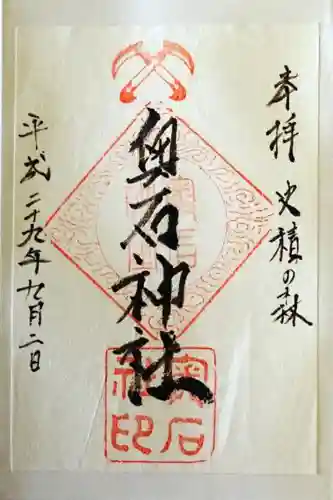 奉拝 史蹟の森
奥石神社
平成二十九年九月二日
奥石社印